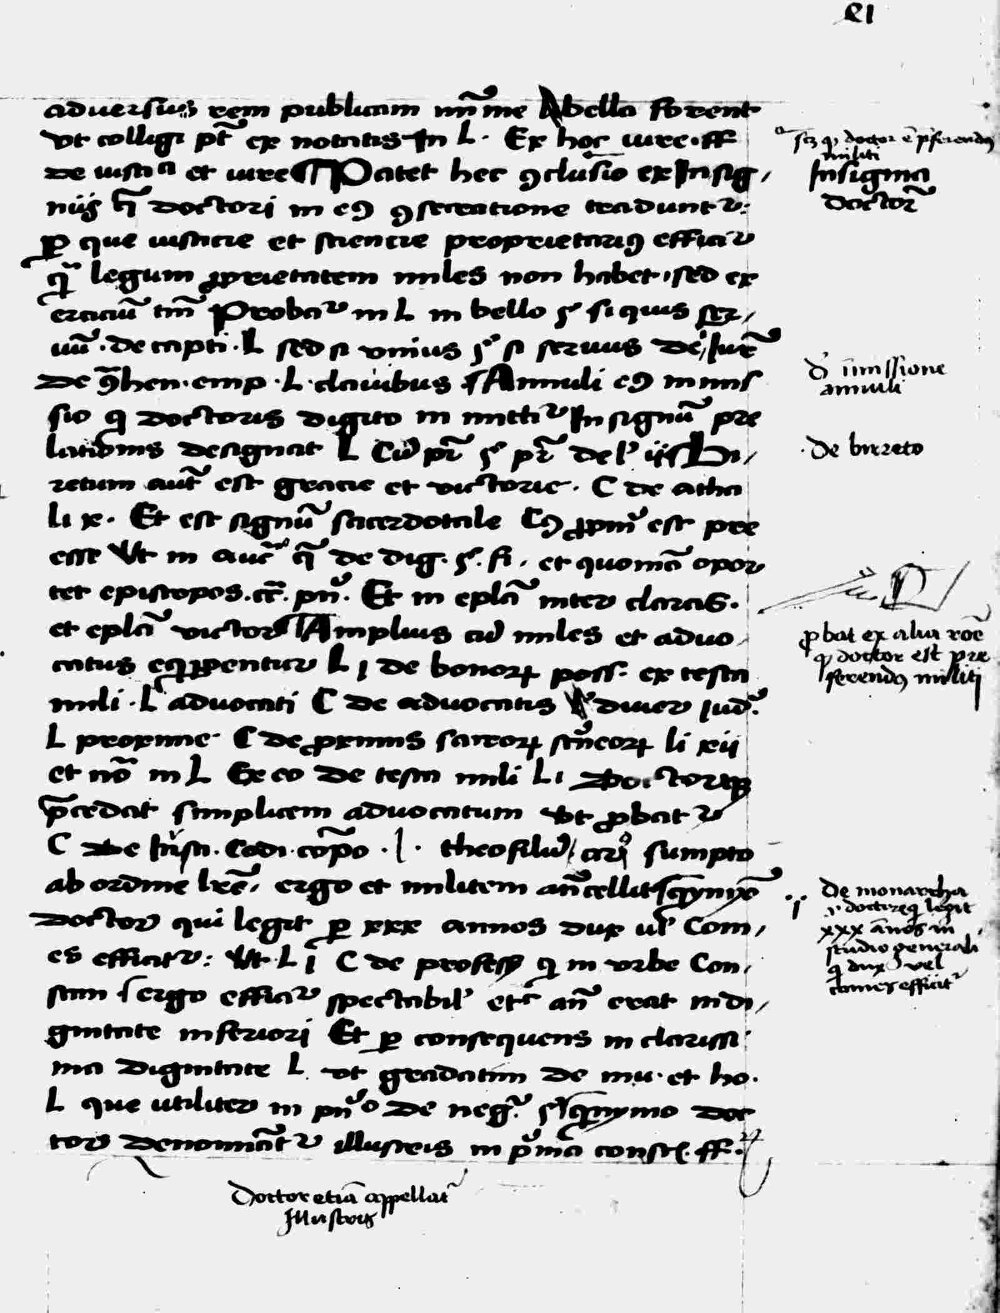 adversus rem publicam nim̄me bella forent
ut colligi pt̄ ex notatis in L. Ex hoc iure. ff
de iusticia et iure Patet hec ꝯclusio ex Insig,
niis q̄ doctori in eiꝰ ꝯsecratione traduntur:
ꝑ que iusticie et sciencie proprietariꝰ efficir
legum ꝓprietatem miles non habet, sed ex
erciciū tm̄ Probar in L in bello § si quis ser,
uū. de capti. L sed si unius § si servus de Iur
de ꝯhen. emp. L. clavibus Annuli eiꝰ inmis
sio q doctoris digito in mittitr In signū pre
lationis designat L
retum aut̄ est gracie et victorie. C de atha
li x. Et est signū sacerdotale Cꝰ ꝓpm̄ est pre
esse Ut in auc̄ q̄ de dig. §. fi. et quomō opor
tet episcopos. cc̄. pn̄. Et in eplā inter claras.
et eplā victor Amplius cū miles et advo
catus eq̄ꝑpentur L i de bonoꝝ poss. ex testa
mili. L advocati C de advocatis diver iud.
L proxime C de ꝓximis sacroꝝ scrineoꝝ li xii
et nō in L Ex eo de testa mili L i Doctorqꝫ
p̄cedat simplicem advocatum ut ꝓbatr
C de Iusti. Codi. cōpo. l. theofilū sumpto
ab ordine lrē, ergo et militem an̄cellit
doctor qui legit ꝑ xxx annos dux ul Com,
es efficitr: Ut L i C de profess q in urbe Con,
stan ergo efficir spectabil etc an̄ erat in di,
gnitate inferiori Et ꝑ consequens in clarissi
ma dignitate L ut gradatim de mu. et ho.
L que utiliter in pn̄o de neg. § doc
tor denominātr illustris in pͥma consti. ff.
doctor ē p̄ferendꝰ
militi
Insignia
doctor
D immissione
annuli
. De birreto
ꝓbat ex alia rōe
q doctor est pre
ferendꝰ militi
De monarcha
doctor legit
xxx annos in
studio generali
q dux vel
comes efficitr
Doctor etiā appellatr
Illustris